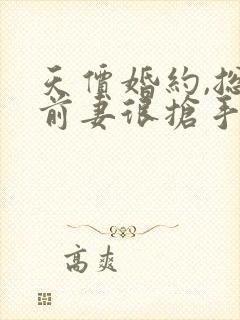 天價婚約,總
前妻很搶手
高爽